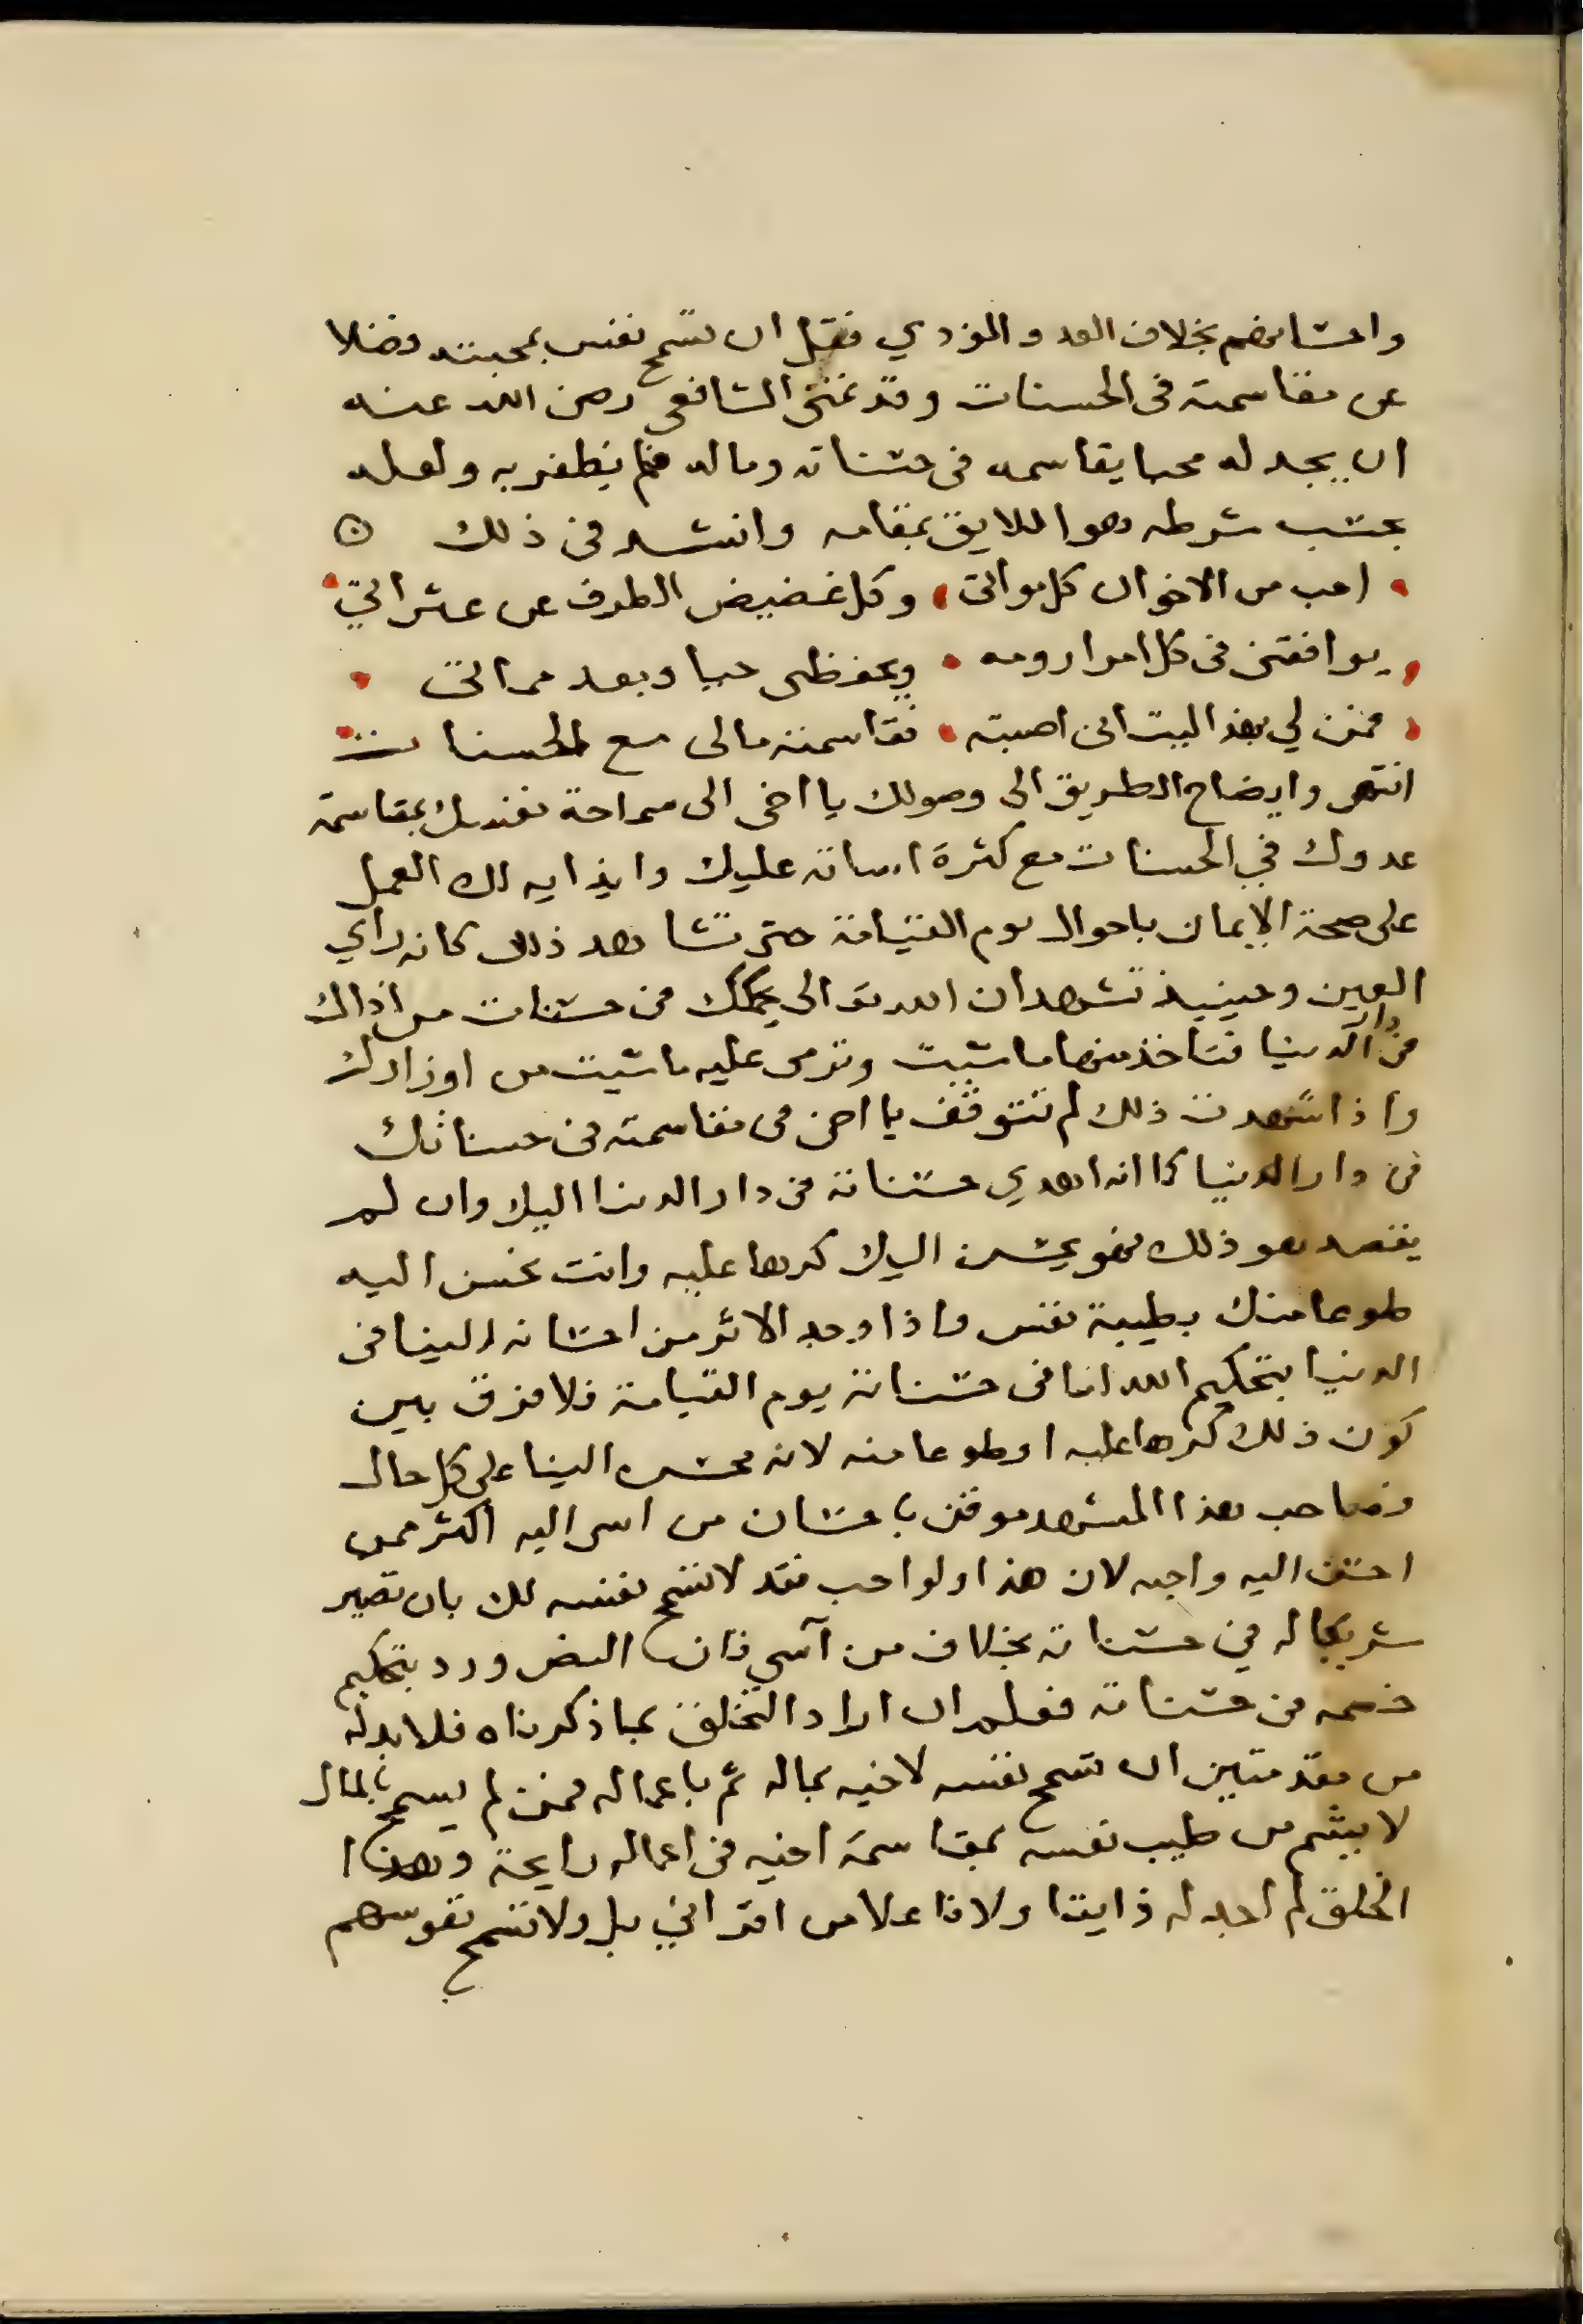 واحسانهم بخلاف العدو والموذي فقل ان تسمح نفس بمحبته فضلا
عن مقاسمته في الحسنات وقد تمنى الشافعي رضي الله عنه
ان يجد له محبا يقاسمه في حسناته وماله فلم يظفر به ولعله
بحسب شرطه وهو اللايق بمقامه وانشد في ذلك
احب من الاخوان كل مواتي وكل غضيض الطرف عن عثراتي
يوافقني في كل امر ارومه ويحفظني حيا وبعد مماتي
فمن لي بهذا ليت اني اصبته فقاسمته مالي مع الحسنات
انتهى وايضاح الطريق الى وصولك يا اخي الى سماحة نفسك بمقاسمة
عدوك في الحسنات مع كثرة اساته عليك وايذايه لك العمل
على صحة الايمان باحوال يوم القيامة حتى تشاهد ذلك كانه راي
العين وحينيذ تشهد ان الله تعالى يحكمك في حسنات من اذاك
في دار الدنيا فتاخذ منها ما شيت وترمي عليه ما شيت من اوزارك
واذا شهدت ذلك لم تتوقف يا اخي في مقاسمته في حسناتك
في دار الدنيا كما انه اهدي حسناته في دار الدنيا اليك وان لم
يقصد هو ذلك فهو يحسن اليك كرها عليه وانت تحسن اليه
طوعا منك بطيبة نفس واذا وجد الاثر من احسانه الينا في
الدنيا بتحكيم الله لنا في حسناته يوم القيامة فلا فرق بين
كون ذلك كرها عليه او طوعا منه لانه محسن الينا على كل حال
وصاحب هذا المشهد موقن باحسان من اسا اليه اكثر ممن
احسن اليه واحبه لان هذا ولو احب فقد لا تسمح نفسه لك بان تصير
شريكا له في حسناته بخلاف من آسي فان النص ورد بتحكيم
خصمه في حسناته فعلم ان من اراد التخلق بما ذكرناه فلا بد له
من مقدمتين ان تسمح نفسه لاخيه بماله ثم باعماله فمن لم يسمح بالمال
لا يشم من طيب نفسه بمقاسمة اخيه في اعماله رايحة وهذا
الخلق لم اجد له ذايقا ولا فاعلا من اقراني بل ولا تسمح نفوسهم